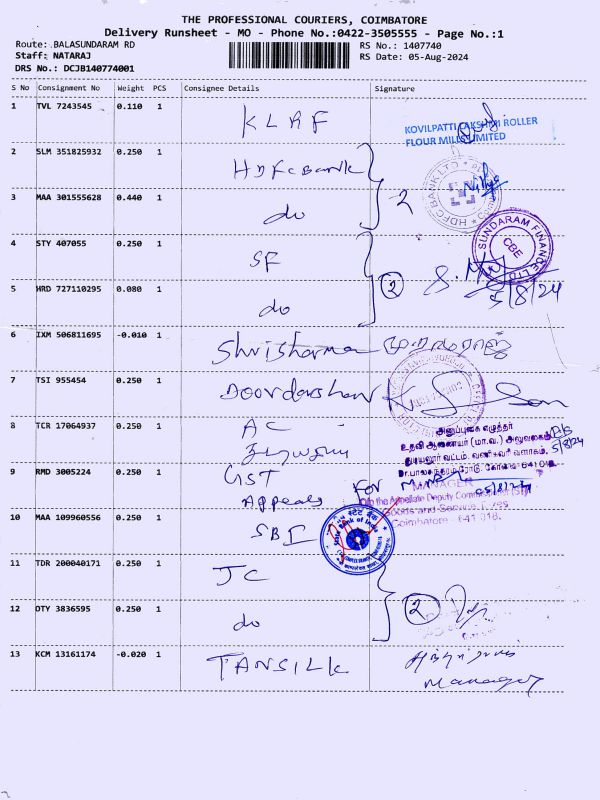 THE PROFESSIONAL COURIERS, COIMBATORE
Delivery Runsheet - MO - Phone No.:0422-3505555 - Page No.:1
Route: BALASUNDARAM RD
RS No.: 1407740
Staff: NATARAJ
RS Date: 05-Aug-2024
DRS No.: DCJB140774001
S No Consignment No Weight PCS Consignee Details Signature
1 TVL 7243545 0.110 1 KLRF
KOVILPATTI LAKSHMI ROLLER
FLOUR MILLS LIMITED
2 SLM 351825932 0.250 1 HDFC Bank
HDFC BANK LTD
3 MAA 301555628 0.440 1 do 2
4 STY 407055 0.250 1 SF
SUNDARAM FINANCE LTD
CBE
5 HRD 727110295 0.080 1 do 2
5/8/24
6 IXM 506811695 -0.010 1 Shrisharma
7 TSI 955454 0.250 1 Doordarshan
8 TCR 17064937 0.250 1 AC
அனுப்புகை எழுத்தர்
உதவி ஆணையர் (மா.வ.) அலுவலகம்
5/8/24
9 RMD 3005224 0.250 1 GST
Appeals
For
05/8/24
MANAGER
O/o the Appellate Deputy Commissioner (ST)
Goods and Service Taxes
Coimbatore - 641 018.
10 MAA 109960556 0.250 1 SBI
भारतीय स्टेट बैंक
State Bank of India
11 TDR 200040171 0.250 1 JC
12 OTY 3836595 0.250 1 do 2
13 KCM 13161174 -0.020 1 TANSILK
Manager